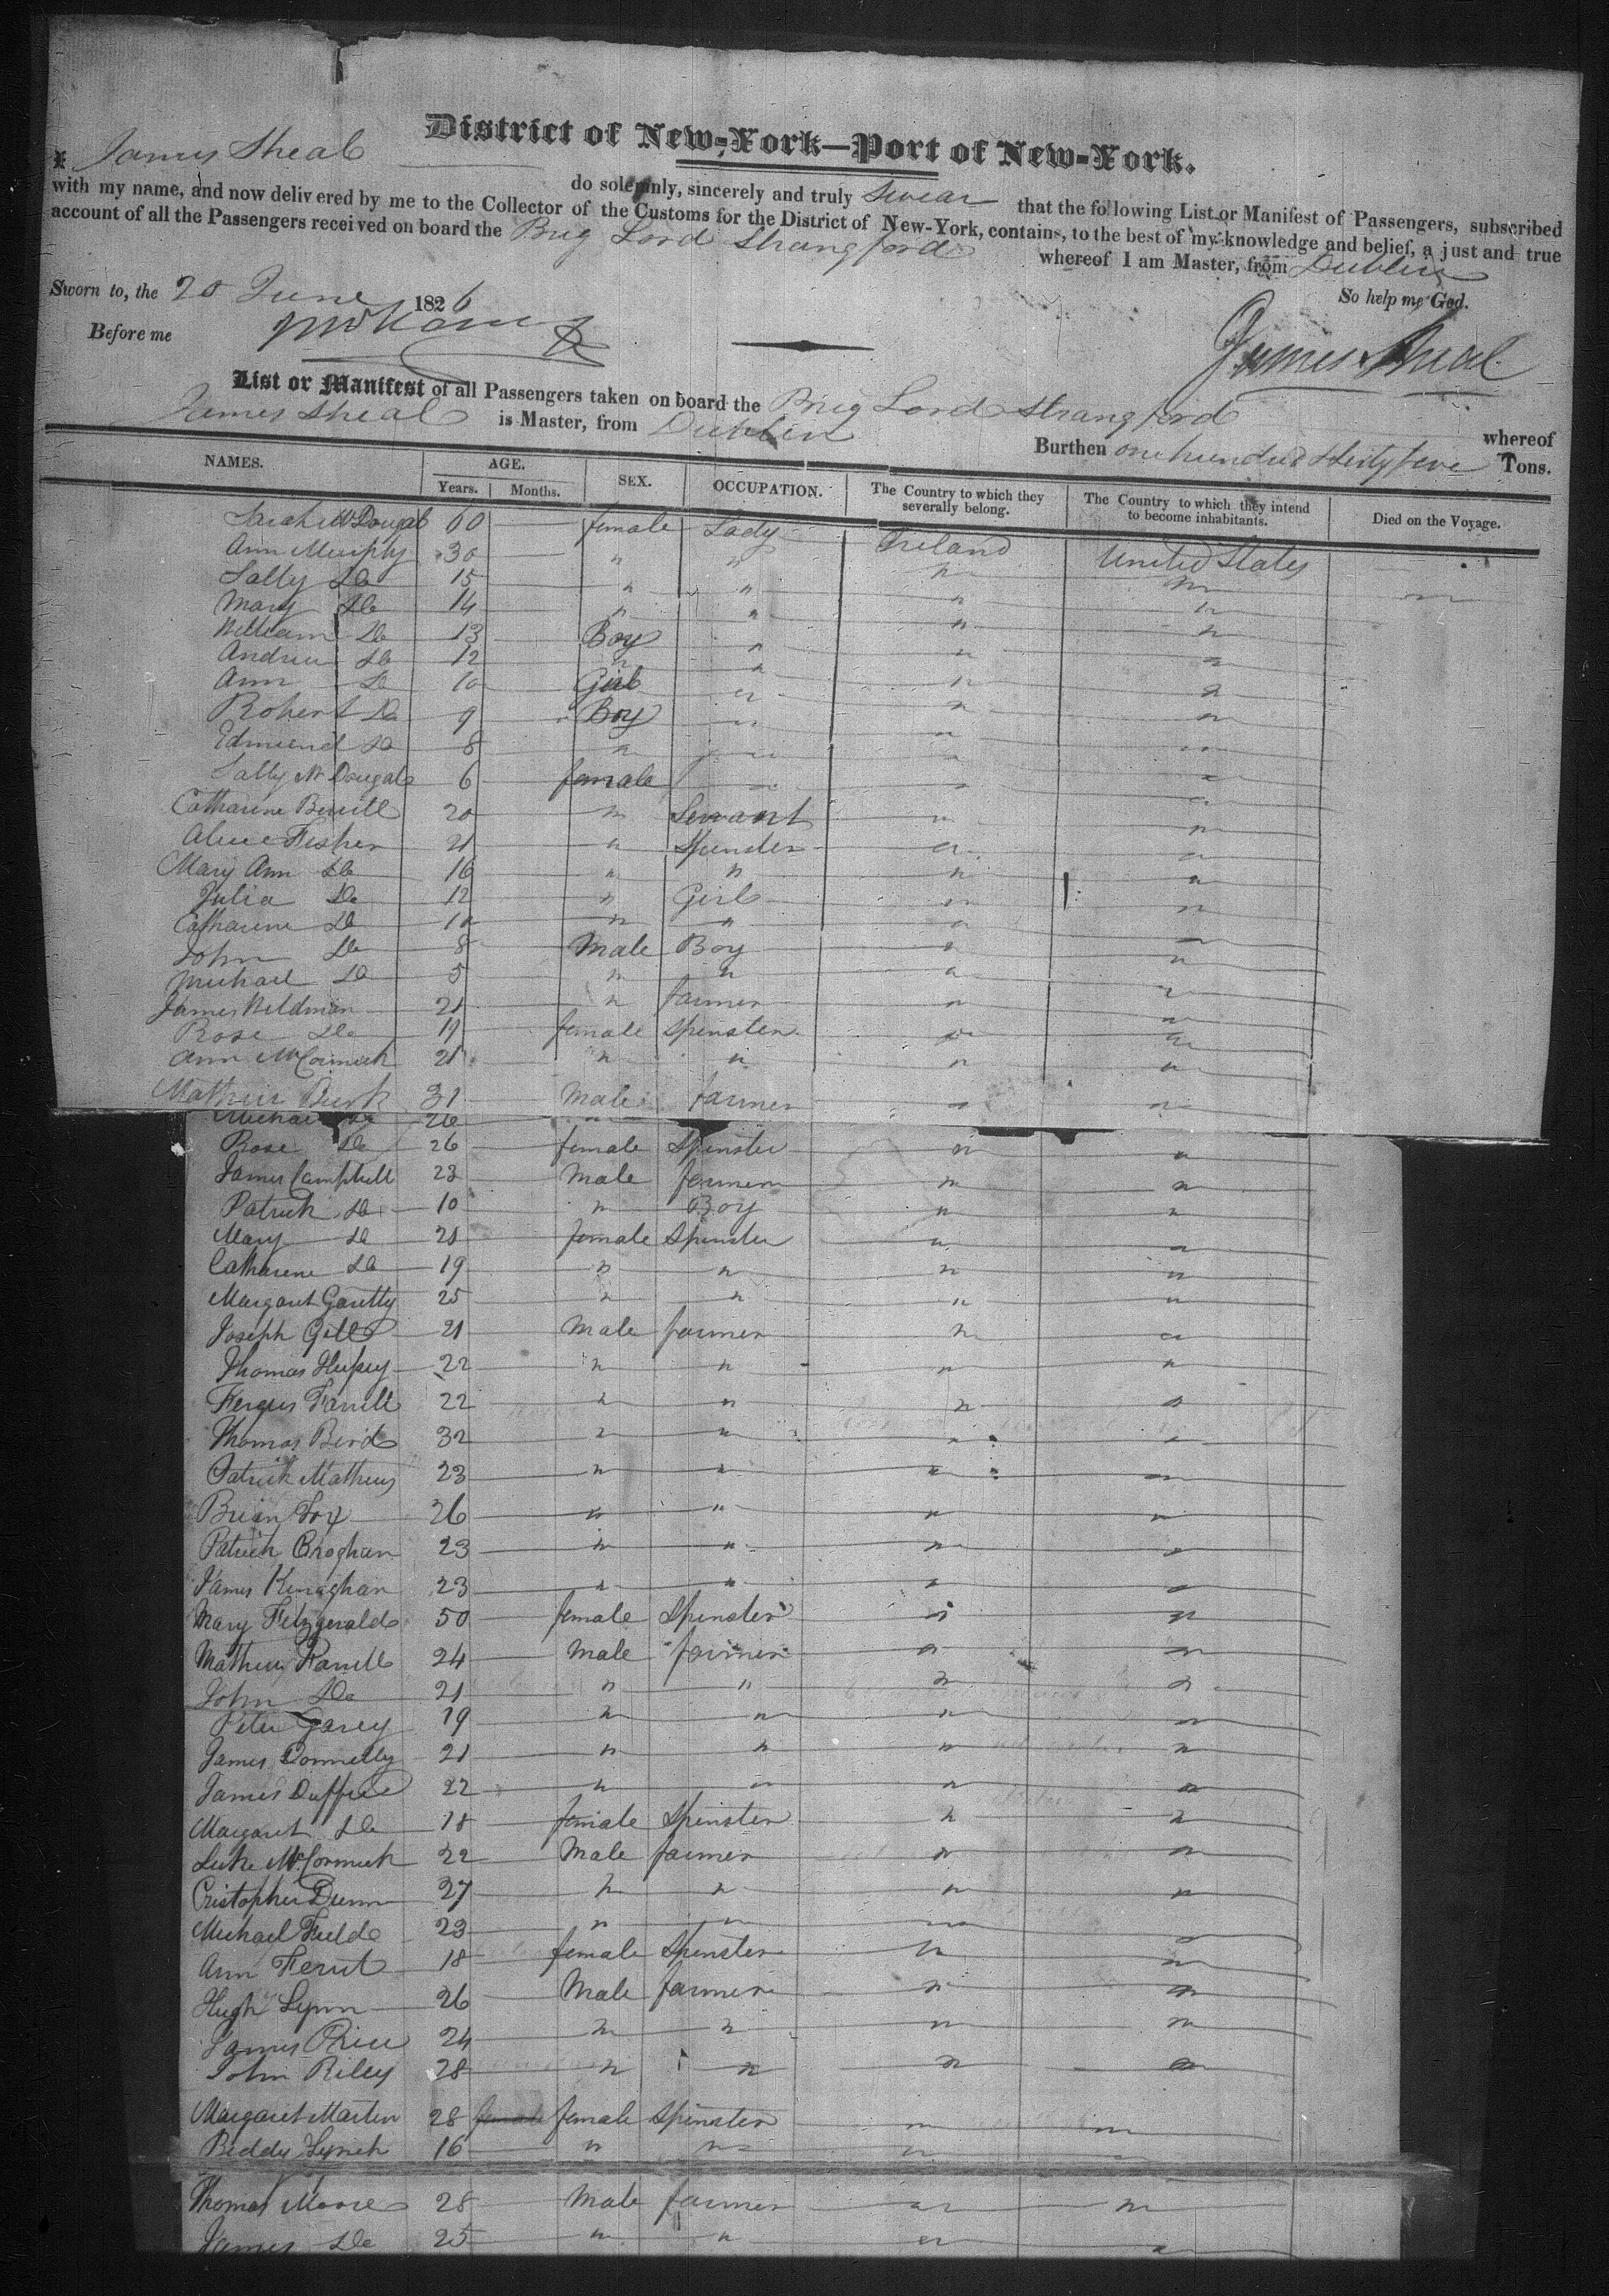 District of New-York—Port of New-York.
I James Sheal do solemnly, sincerely and truly Swear that the following List or Manifest of Passengers, subscribed
with my name, and now delivered by me to the Collector of the Customs for the District of New-York, contains, to the best of my knowledge and belief, a just and true
account of all the Passengers received on board the Brig Lord Strangford whereof I am Master, from Dublin
Sworn to, the 20 June 1826 So help me God.
Before me James Sheal
List or Manifest of all Passengers taken on board the Brig Lord Strangford whereof
James Sheal is Master, from Dublin Burthen one hundred Sixty five Tons.
NAMES. AGE. Years. Months. SEX. OCCUPATION. The Country to which they severally belong. The Country to which they intend to become inhabitants. Died on the Voyage.
Sarah McDougal 60 female Lady Ireland United States
Ann Murphy 30 " " " "
Sally Do 15 " " " "
Mary Do 14 " " " "
William Do 13 Boy " " "
Andrew Do 12 " " " "
Ann Do 10 Girl " " "
Robert Do 9 Boy " " "
Edmund Do 8 " " " "
Sally McDougal 6 female " " "
Catharine 20 " Servant " "
Alice Fisher 21 " Spinster " "
Mary Ann Do 16 " " " "
Julia Do 12 " Girl " "
Catharine Do 10 " " " "
John Do 8 Male Boy " "
Michael Do 5 " " " "
James Wildman 21 " farmer " "
Rose Do 19 female Spinster " "
Ann McCormick 21 " " " "
Mathew Burk 31 Male farmer " "
Michael Do 26 "
Rose Do 26 female Spinster " "
James Campbell 23 Male farmer " "
Patrick Do 10 " Boy " "
Mary Do 21 female Spinster " "
Catharine Do 19 " " " "
Margaret Garetty 25 " " " "
Joseph Gill 21 Male farmer " "
Thomas 22 " " " "
Fergus Farrell 22 " " " "
Thomas Bird 32 " " " "
Patrick Mathews 23 " " " "
Brian Fox 26 " " " "
Patrick Croghan 23 " " " "
James Kenaghan 23 " " " "
Mary Fitzgerald 50 female Spinster " "
Mathew Farrell 24 Male farmer " "
John Do 21 " " " "
Peter Garey 19 " " " "
James Donnelly 21 " " " "
James Duffee 22 " " " "
Margaret Do 18 female Spinster " "
Luke McCormick 22 Male farmer " "
Cristopher Dunn 27 " " " "
Michael Field 23 " " " "
Ann 18 female Spinster " "
Hugh Lynn 26 Male farmer " "
James Price 24 " " " "
John Riley 28 " " " "
Margaret Martin 28 female female Spinster " "
Biddy Lynch 16 " " " "
Thomas Moore 28 Male farmer " "
James Do 25 " " " "